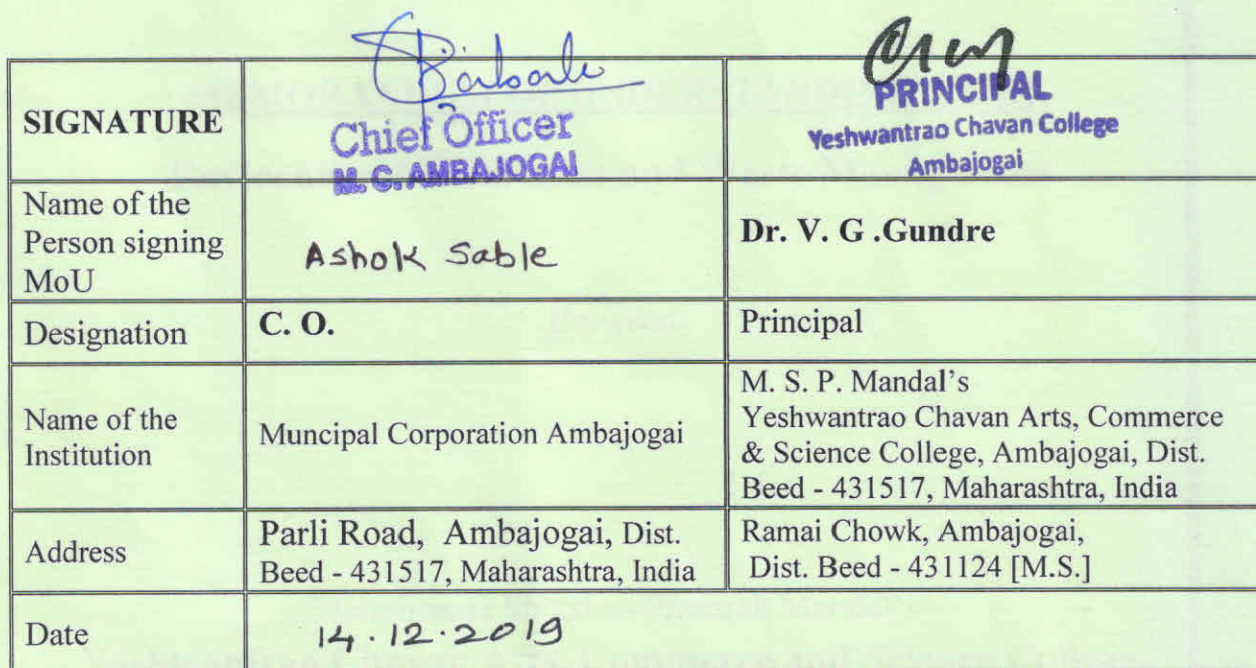 SIGNATURE
Chief Officer
M. C. AMBAJOGAI
PRINCIPAL
Yeshwantrao Chavan College
Ambajogai
Name of the
Person signing
MoU
Ashok Sable
Dr. V. G .Gundre
Designation
C. O.
Principal
Name of the
Institution
Muncipal Corporation Ambajogai
M. S. P. Mandal's
Yeshwantrao Chavan Arts, Commerce
& Science College, Ambajogai, Dist.
Beed - 431517, Maharashtra, India
Address
Parli Road, Ambajogai, Dist.
Beed - 431517, Maharashtra, India
Ramai Chowk, Ambajogai,
Dist. Beed - 431124 [M.S.]
Date
14.12.2019